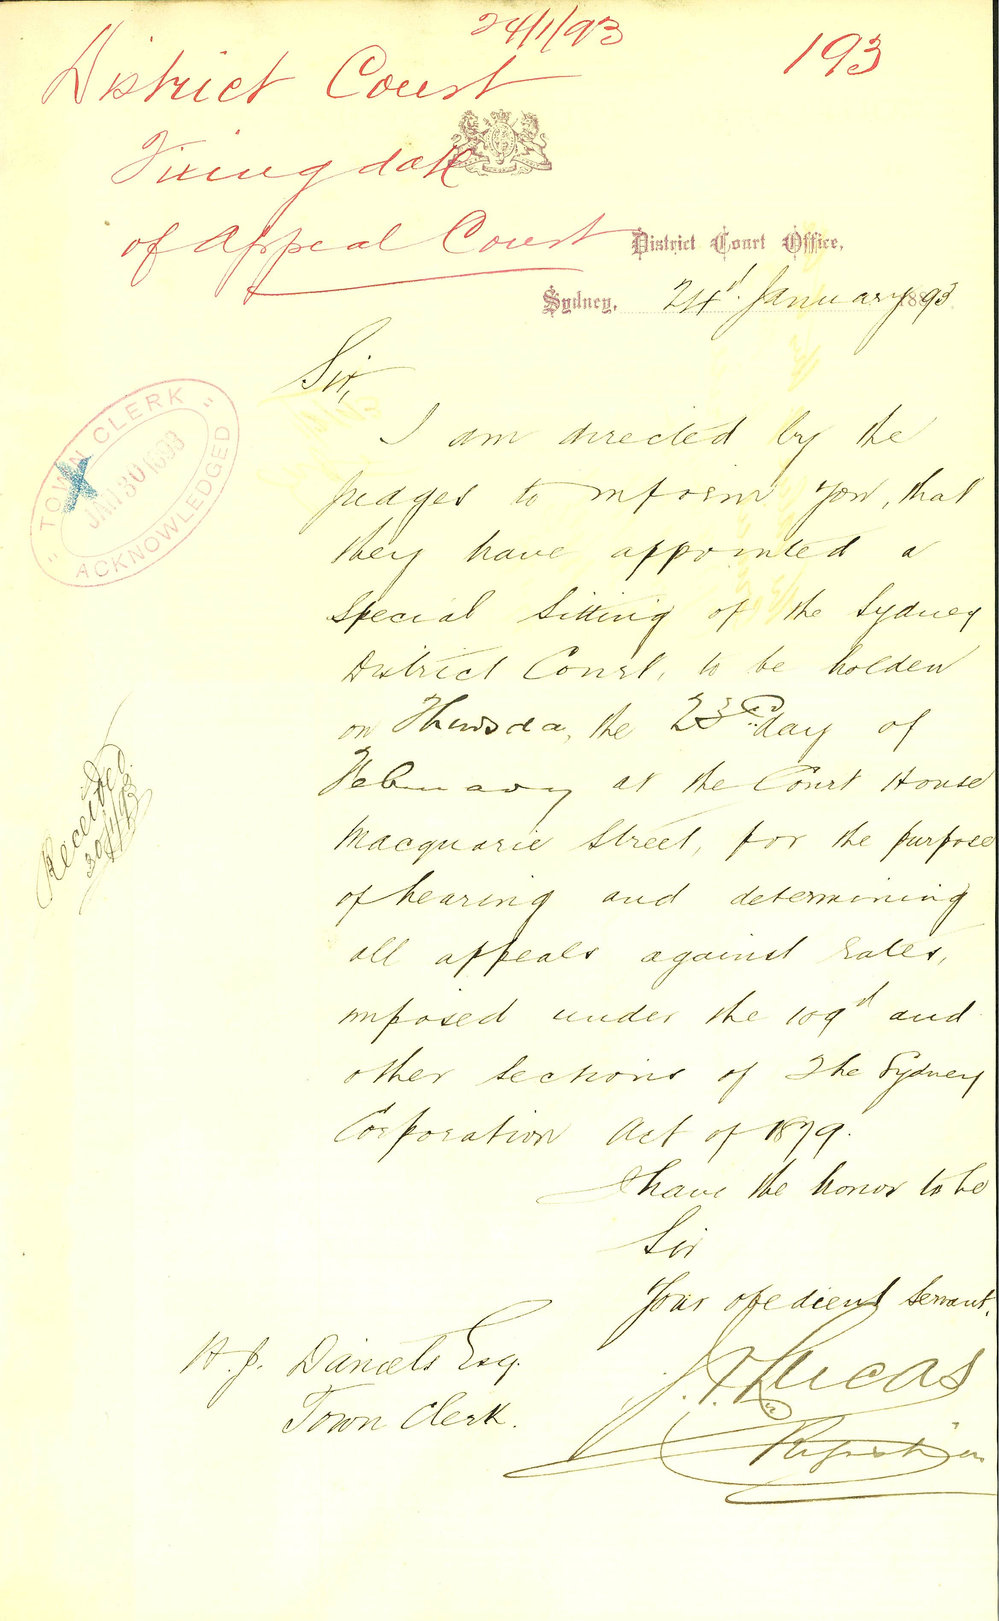 24/1/93
193
District Court
Fixing date
of Appeal Court
District Court Office,
Sydney, 24th January 1893
Sir,
I am directed by the
Judges to inform you, that
they have appointed a
Special Sitting of the Sydney
District Court, to be holden
on Thursda, the 23rd day of
February at the Court House
Macquarie Street, for the purpose
of hearing and determining
all appeals against Rates,
imposed under the 109th and
other sections of The Sydney
Corporation Act of 1879.
I have the honor to be
Sir
Your obedient Servant,
J. F. Lucas
Registrar
H. J. Daniels Esq.
Town Clerk.
"TOWN CLERK"
JAN 30 1893
ACKNOWLEDGED
X
Received
30/1/93